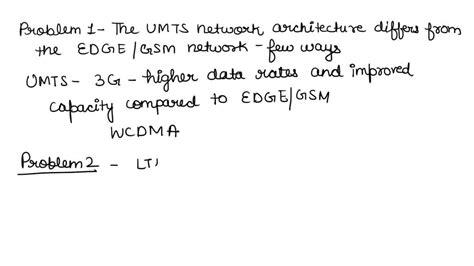 Problem 1 - The UMTS network architecture differs from
the EDGE/GSM network - few ways
UMTS - 3G - higher data rates and improved
capacity compared to EDGE/GSM
WCDMA
Problem 2 - LT